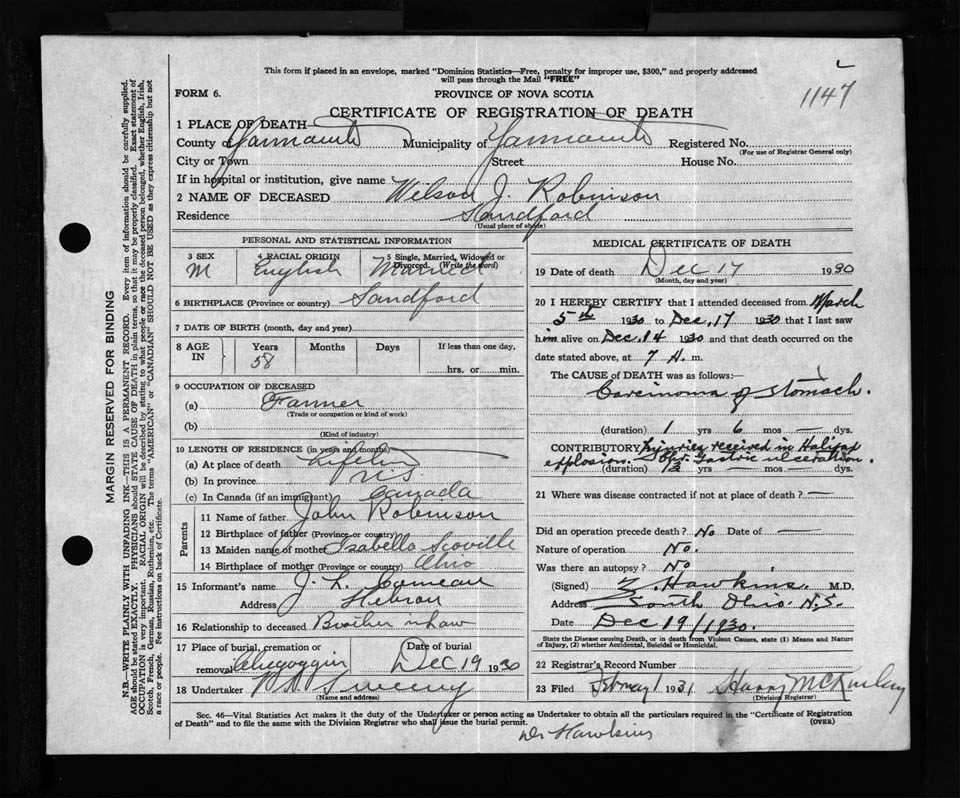 This form if placed in an envelope, marked "Dominion Statistics—Free, penalty for improper use, $300," and properly addressed
will pass through the Mail "FREE"
FORM 6.
PROVINCE OF NOVA SCOTIA
1147
CERTIFICATE OF REGISTRATION OF DEATH
1 PLACE OF DEATH
County of Yarmouth Municipality of Yarmouth Registered No.
(For use of Registrar General only)
City or Town Street House No.
If in hospital or institution, give name
2 NAME OF DECEASED Wilson J. Robinson
Residence Sandford
(Usual place of abode)
PERSONAL AND STATISTICAL INFORMATION
3 SEX 4 RACIAL ORIGIN 5 Single, Married, Widowed or Divorced. (Write the word)
M English Married
6 BIRTHPLACE (Province or country) Sandford
7 DATE OF BIRTH (month, day and year)
8 AGE IN Years Months Days If less than one day,
58
hrs. or min.
9 OCCUPATION OF DECEASED
(a) Farmer
(Trade or occupation or kind of work)
(b)
(Kind of industry)
10 LENGTH OF RESIDENCE (in years and months)
(a) At place of death Life
(b) In province NS
(c) In Canada (if an immigrant) Canada
Parents
11 Name of father John Robinson
12 Birthplace of father (Province or country)
13 Maiden name of mother Isabella Scoville
14 Birthplace of mother (Province or country) Ohio
15 Informant's name J. L. Comeau
Address Hebron
16 Relationship to deceased Brother n law
17 Place of burial, cremation or removal Chegoggin Date of burial Dec 19 1930
18 Undertaker Sweeny
(Name and address)
MEDICAL CERTIFICATE OF DEATH
19 Date of death Dec 17 1930
(Month, day and year)
20 I HEREBY CERTIFY that I attended deceased from March
5th 1930 to Dec. 17 1930 that I last saw
him alive on Dec. 14 1930 and that death occurred on the
date stated above, at 7 A. m.
The CAUSE of DEATH was as follows:—
Carcinoma of stomach.
(duration) 1 yrs 6 mos — dys.
CONTRIBUTORY Injuries received in Halifax
explosion. Gastric ulceration.
(duration) yrs — mos — dys.
21 Where was disease contracted if not at place of death? —
Did an operation precede death? No Date of —
Nature of operation No.
Was there an autopsy? No
(Signed) Z. Hawkins. M.D.
Address South Ohio. N.S.
Date Dec 19/1930.
State the Disease causing Death, or in death from Violent Causes, state (1) Means and Nature
of Injury, (2) whether Accidental, Suicidal or Homicidal.
22 Registrar's Record Number
23 Filed 1931 Harry McKinley
(Division Registrar)
Sec. 46—Vital Statistics Act makes it the duty of the Undertaker or person acting as Undertaker to obtain all the particulars required in the "Certificate of Registration
of Death" and to file the same with the Division Registrar who shall issue the burial permit. (OVER)
Dr Hawkins
MARGIN RESERVED FOR BINDING
N.B.—WRITE PLAINLY WITH UNFADING INK—THIS IS A PERMANENT RECORD. Every item of information should be carefully supplied.
AGE should be stated EXACTLY. PHYSICIANS should STATE CAUSE OF DEATH in plain terms, so that it may be properly classified. Exact statement of
OCCUPATION is very important. RACIAL ORIGIN will be described by stating to what people or race the deceased person belonged, whether English, Irish,
Scotch, French, German, Russian, Ruthenian, etc. The terms "AMERICAN" or "CANADIAN" SHOULD NOT BE USED as they express citizenship but not
a race or people. See instructions on back of Certificate.